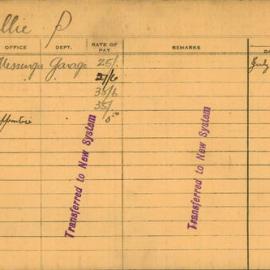 llie P
OFFICE DEPT. RATE OF PAY REMARKS DA
Messenger Garage 25/- July
27/6
35/-
Transferred to New System
Transferred to New System